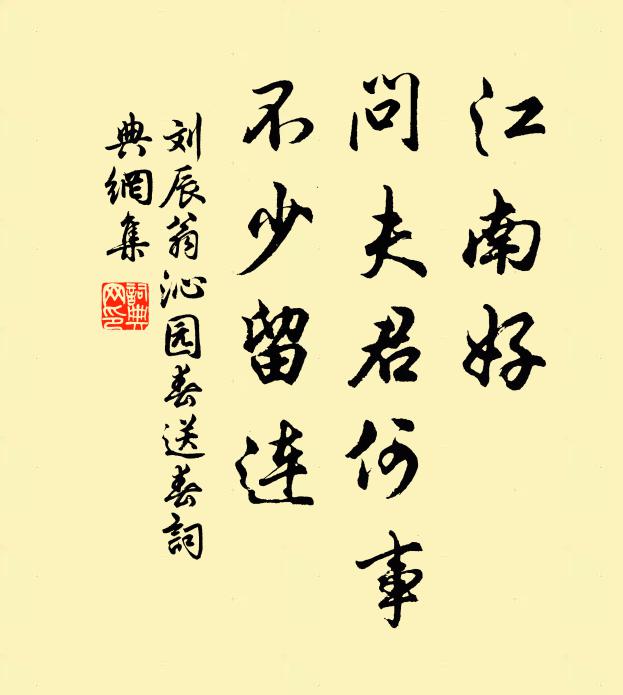 江南好
问夫君何事
不少留连
刘辰翁沁园春送春词
典網集
詞典
网印